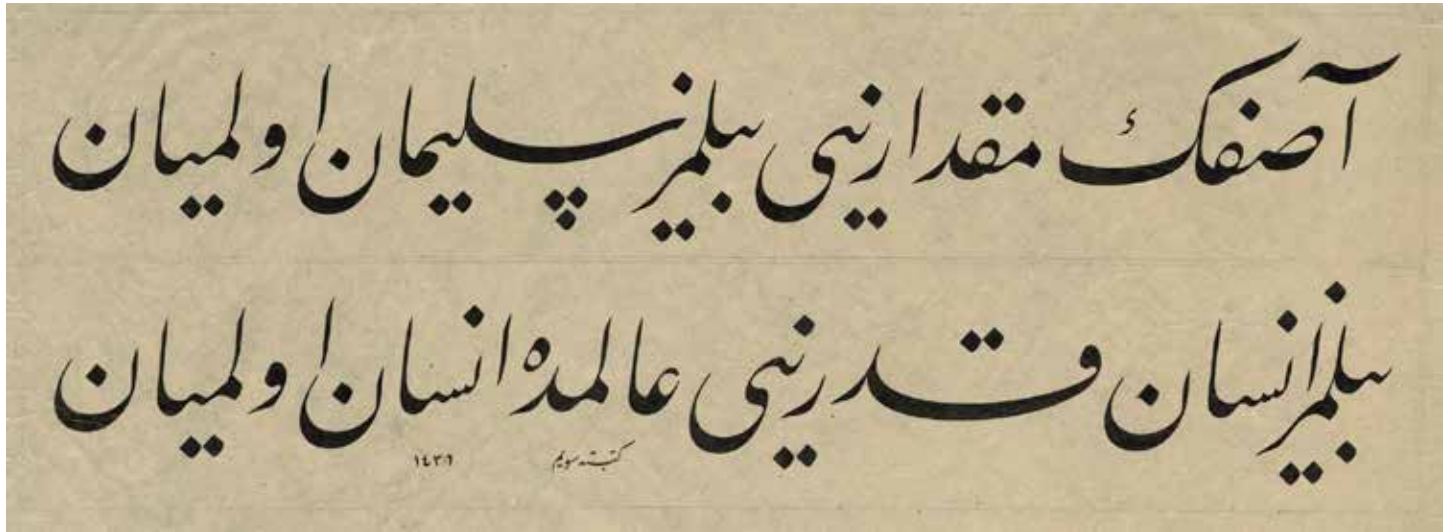 آصفك مقدارینی بیلمز سلیمان اولمیان
بیلمز انسان قدرینی عالمده انسان اولمیان
١٤٣٦